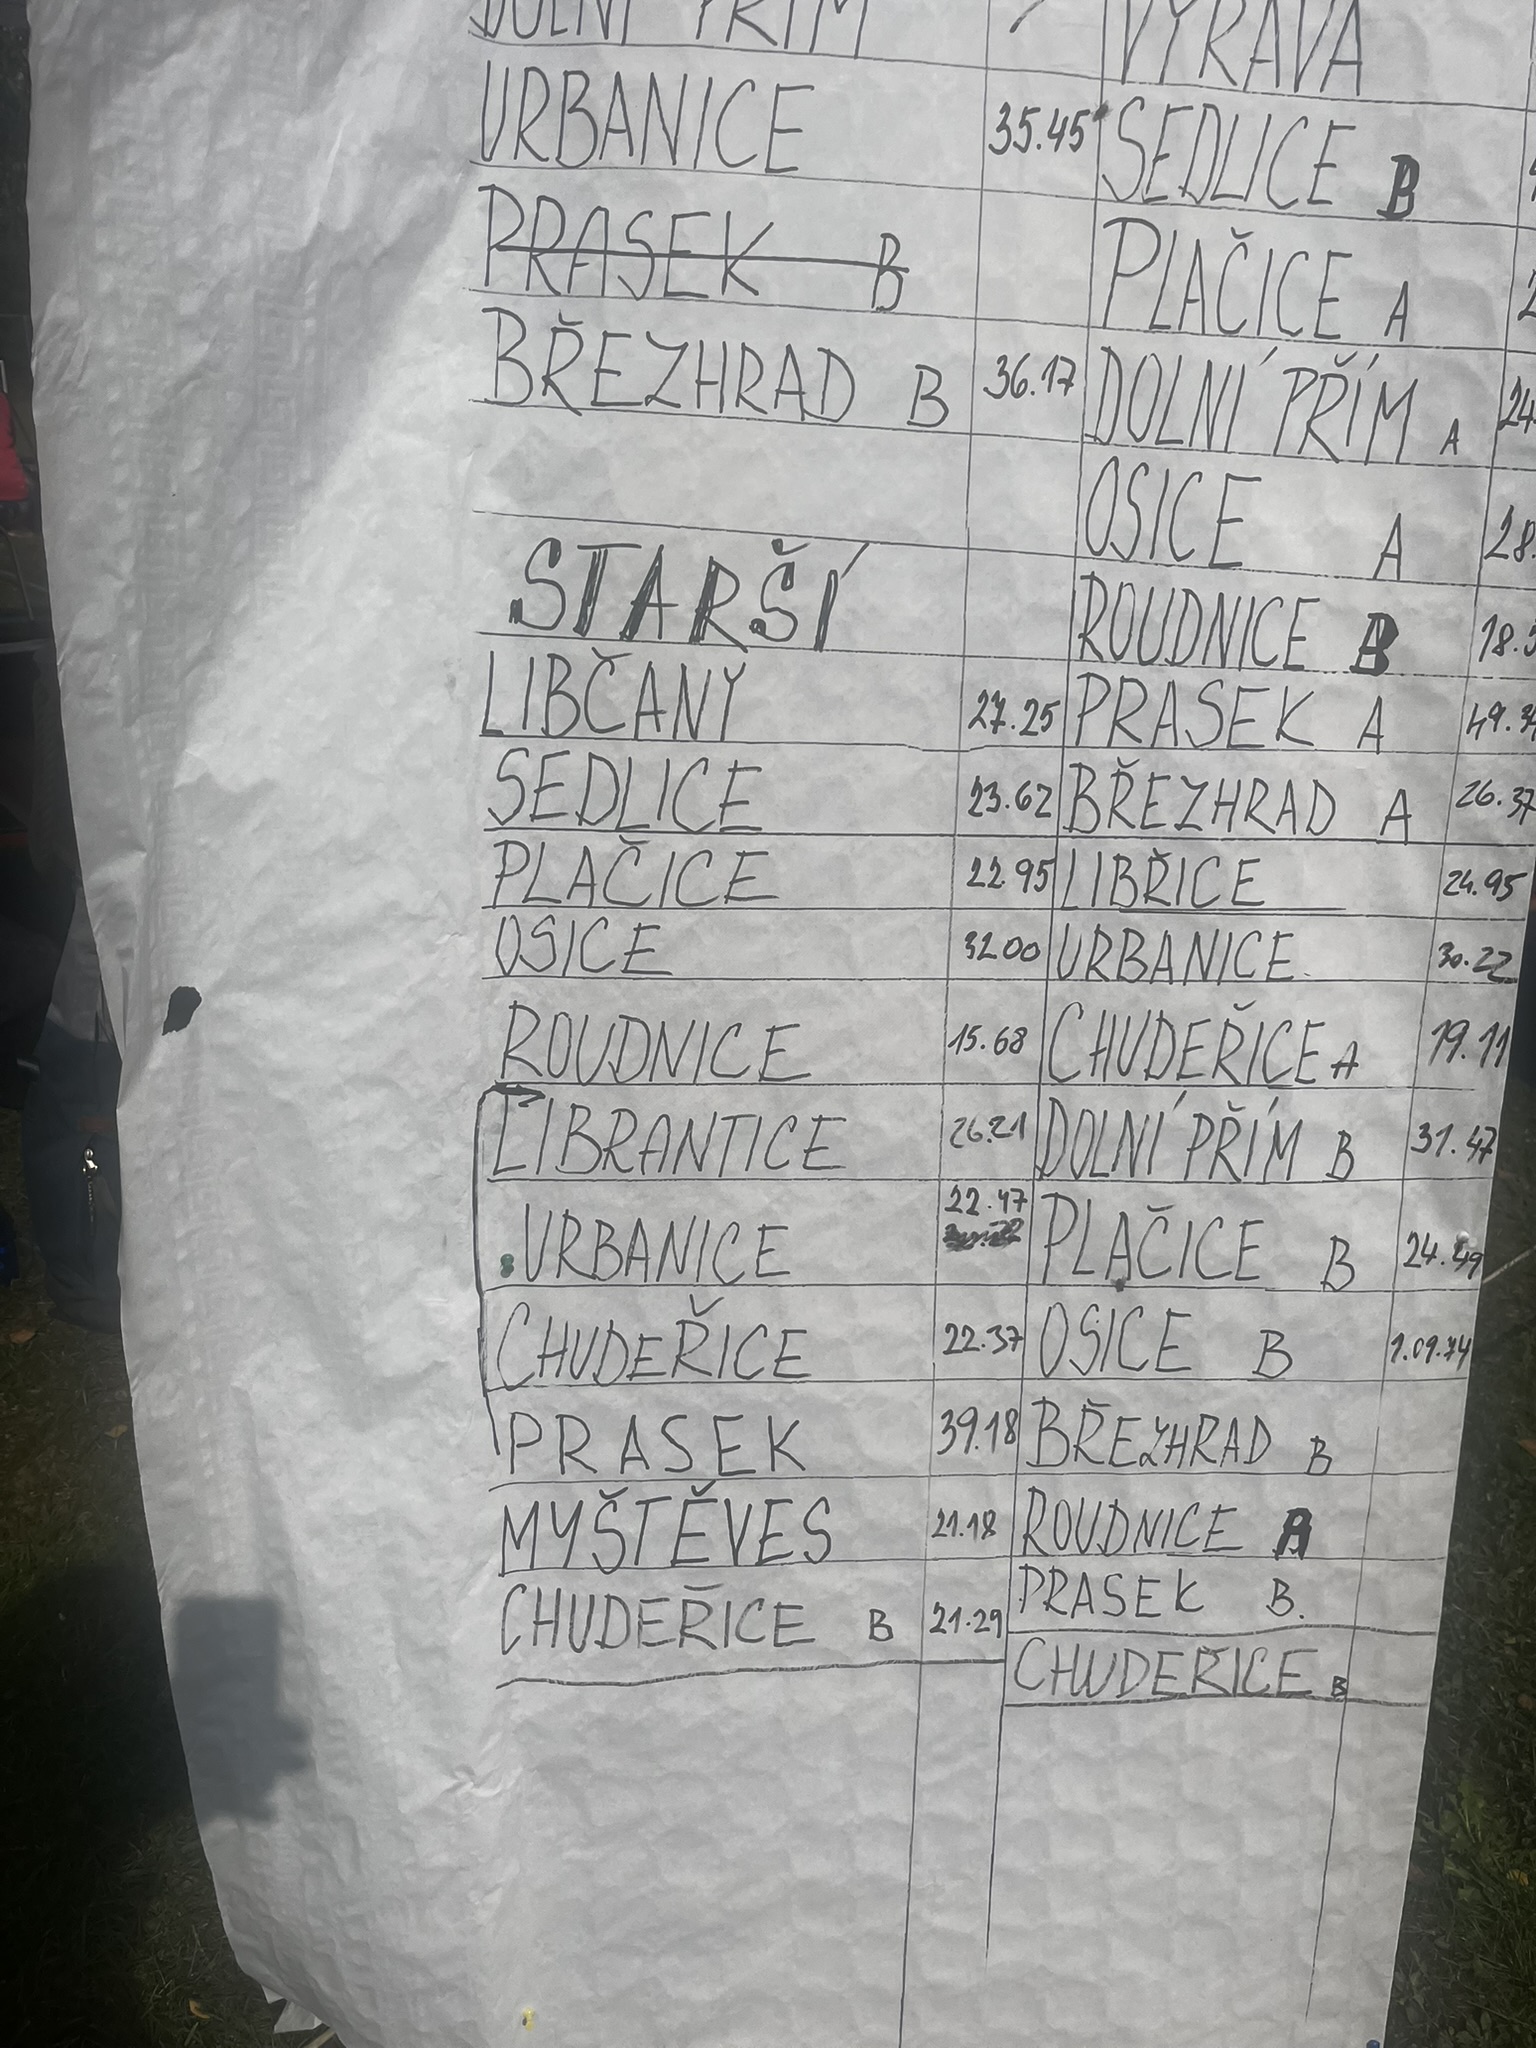 DOLNÍ PŘÍM
URBANICE 35.45
PRASEK B
BŘEZHRAD B 36.17
STARŠÍ
LIBČANY 27.25
SEDLICE 23.62
PLAČICE 22.95
OSICE 32.00
ROUDNICE 15.68
LIBRANTICE 26.21
URBANICE 22.47
CHUDEŘICE 22.37
PRASEK 39.18
MYŠTĚVES 21.18
CHUDEŘICE B 21.29
VÝRAVA
SEDLICE B
PLAČICE A
DOLNÍ PŘÍM A 24.
OSICE A 28.
ROUDNICE B 18.
PRASEK A 49.
BŘEZHRAD A 26.37
LIBŘICE 24.95
URBANICE 30.22
CHUDEŘICE A 19.11
DOLNÍ PŘÍM B 31.47
PLAČICE B 24.49
OSICE B 1.09.74
BŘEZHRAD B
ROUDNICE A
PRASEK B.
CHUDEŘICE B